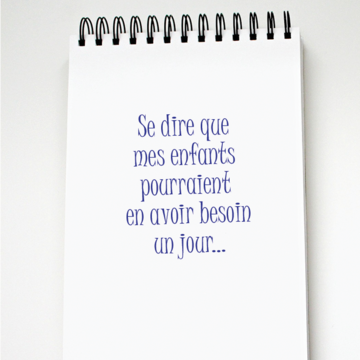 Se dire que
mes enfants
pourraient
en avoir besoin
un jour...